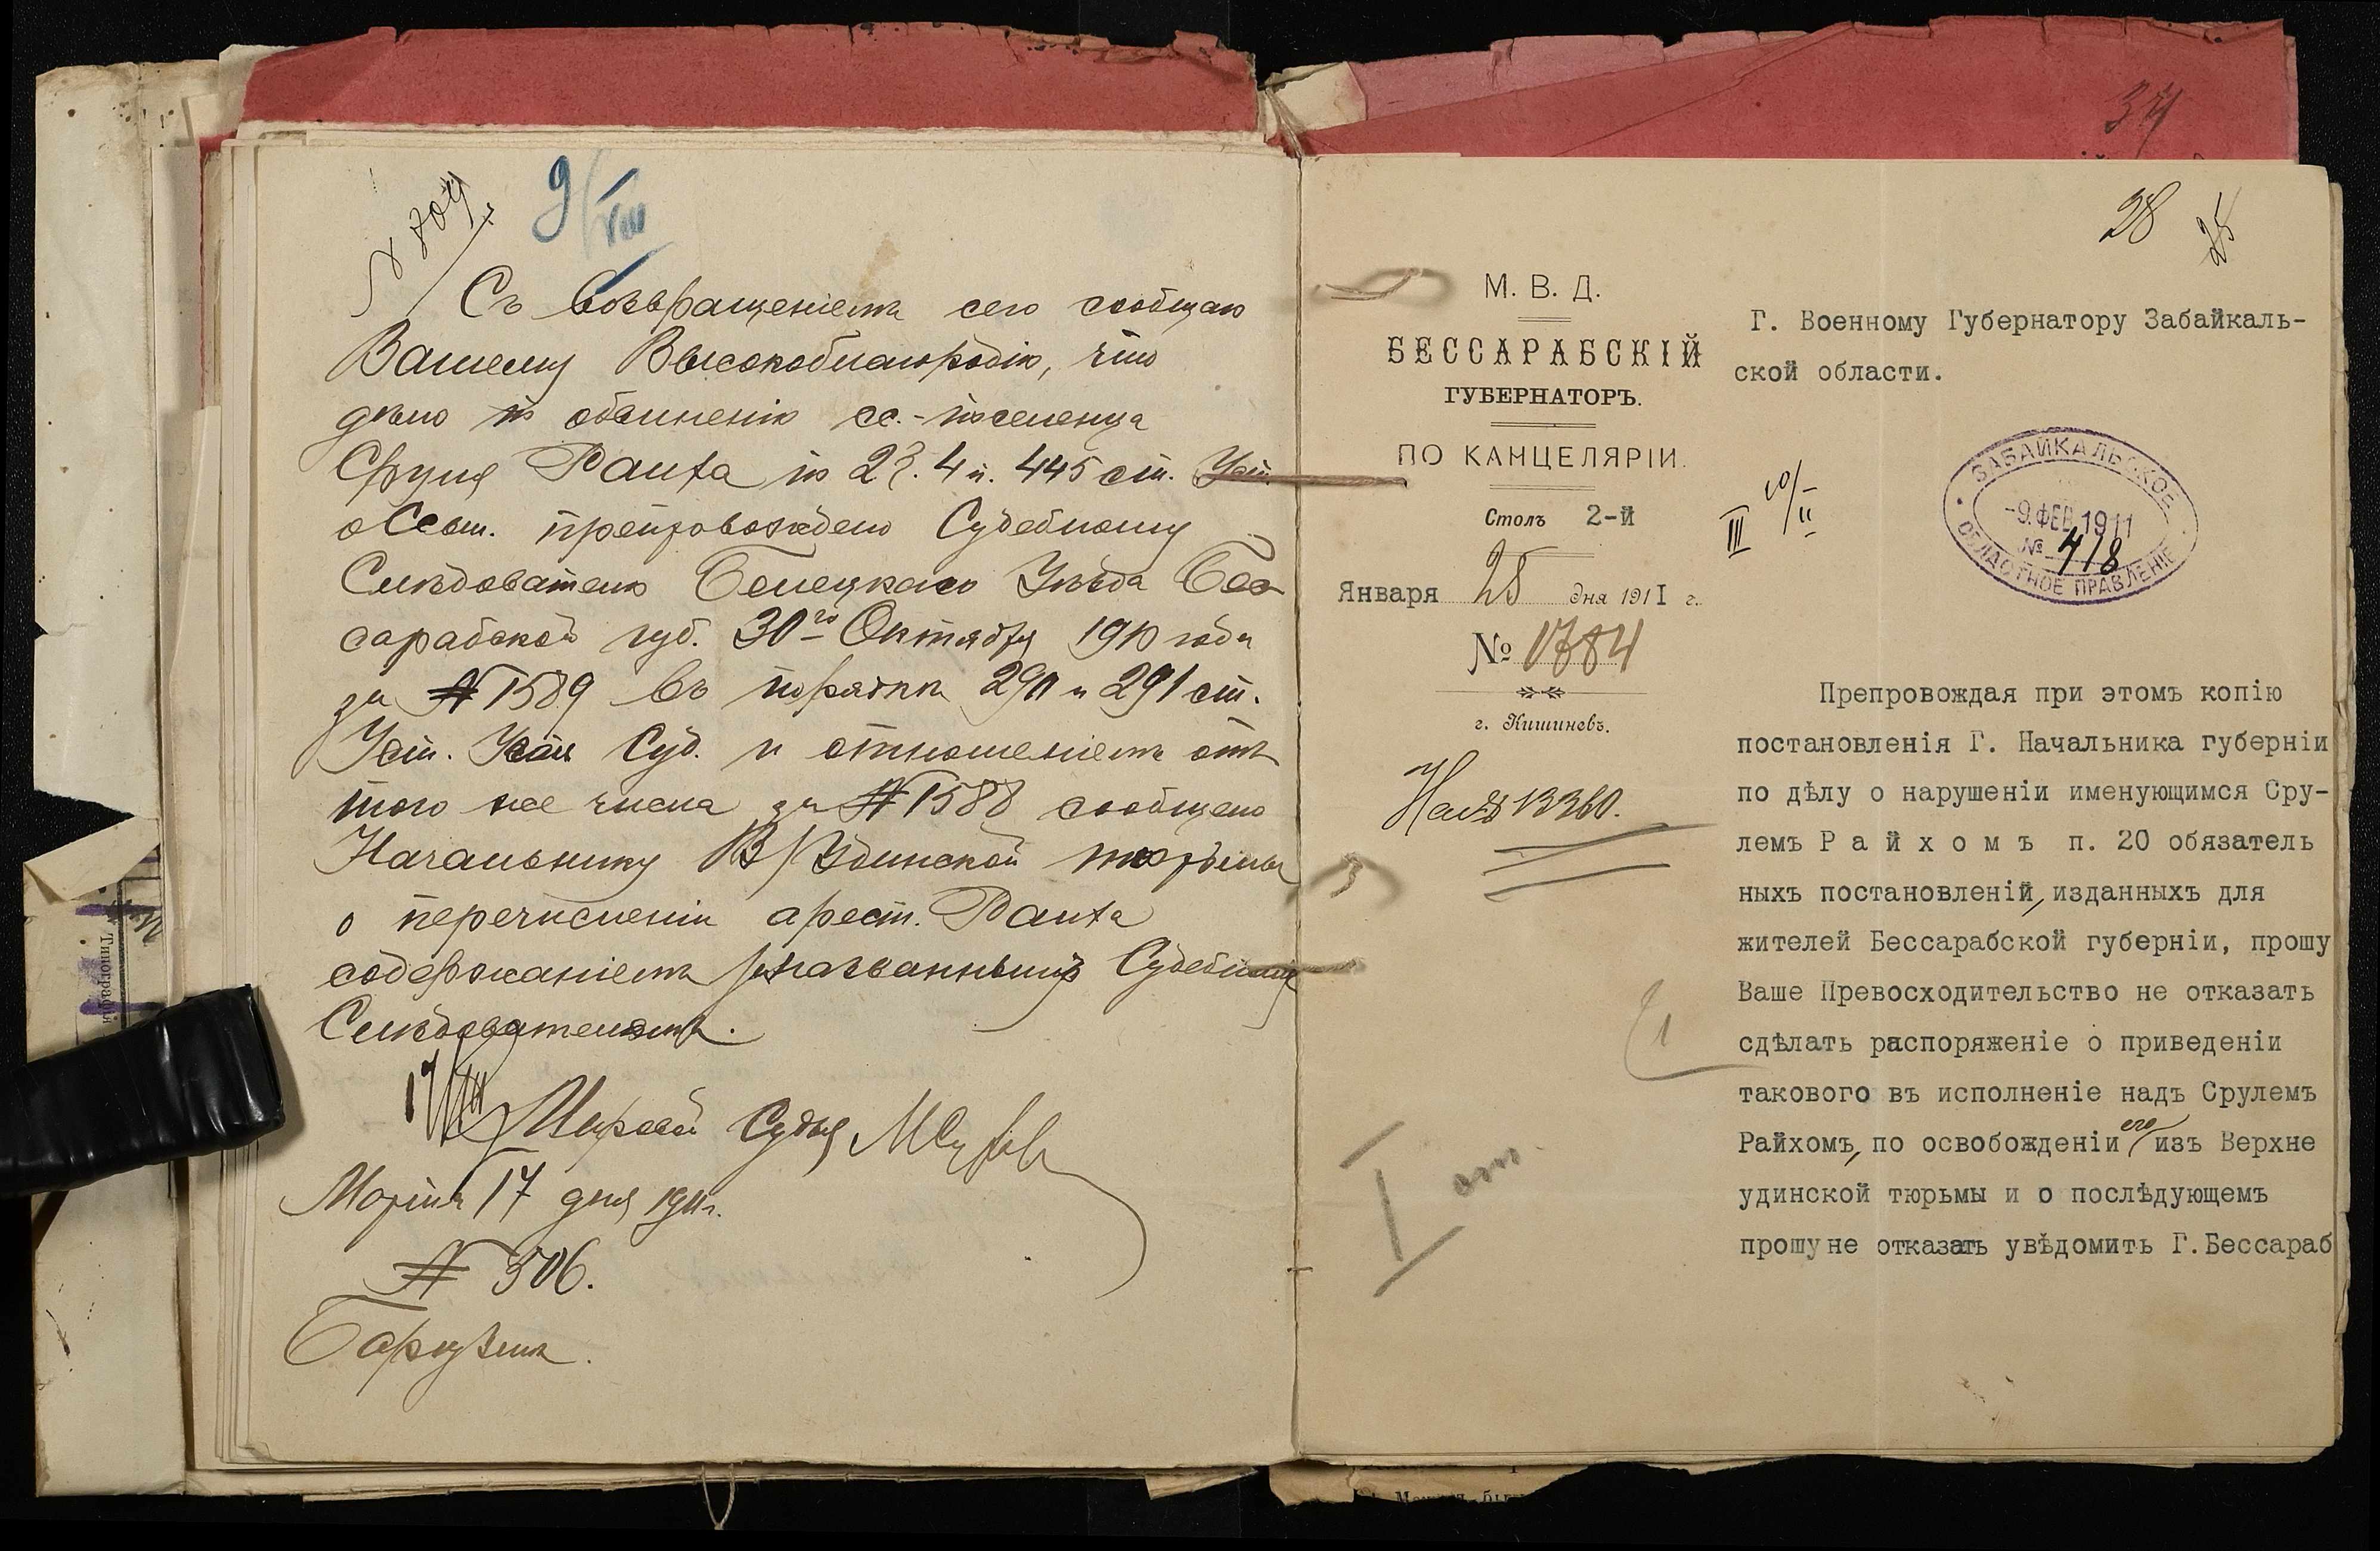 9/VIII
Съ возвращеніемъ сего сообщаю
Вашему Высокоблагородію, что
дѣло по обвиненію сс.-поселенца
Сруля Райха по 2 ч. 4 п. 445 ст. Уст.
о Ссыл. препровождено Судебному
Слѣдователю Бѣлецкаго Уѣзда Бес-
сарабской губ. 30го Октября 1910 года
за № 1589 въ порядкѣ 290 и 291 ст.
Уст. Угол. Суд. и отношеніемъ отъ
того же числа за № 1588 сообщено
Начальнику В/Удинской тюрьмы
о перечисленіи арест. Райха
содержаніемъ за названнымъ Судебнымъ
Слѣдователемъ.
Мировой Судья
Марта 17 дня 1911 г.
№ 506.
Баргузинъ.
34
28
25
М. В. Д.
БЕССАРАБСКІЙ
ГУБЕРНАТОРЪ.
ПО КАНЦЕЛЯРІИ.
Столъ 2-й
Января 25 дня 1911 г.
№ 1784
г. Кишиневъ.
На № 13360.
I
Г. Военному Губернатору Забайкаль-
ской области.
III 10/II
ЗАБАЙКАЛЬСКОЕ
-9.ФЕВ.1911
№ 418
ОБЛАСТНОЕ ПРАВЛЕНІЕ
Препровождая при этомъ копію
постановленія Г. Начальника губерніи
по дѣлу о нарушеніи именующимся Сру-
лемъ Райхомъ п. 20 обязатель
ныхъ постановленій, изданныхъ для
жителей Бессарабской губерніи, прошу
Ваше Превосходительство не отказать
сдѣлать распоряженіе о приведеніи
такового въ исполненіе надъ Срулемъ
Райхомъ, по освобожденіи его изъ Верхне
удинской тюрьмы и о послѣдующемъ
прошу не отказать увѣдомить Г. Бессараб
Типографія